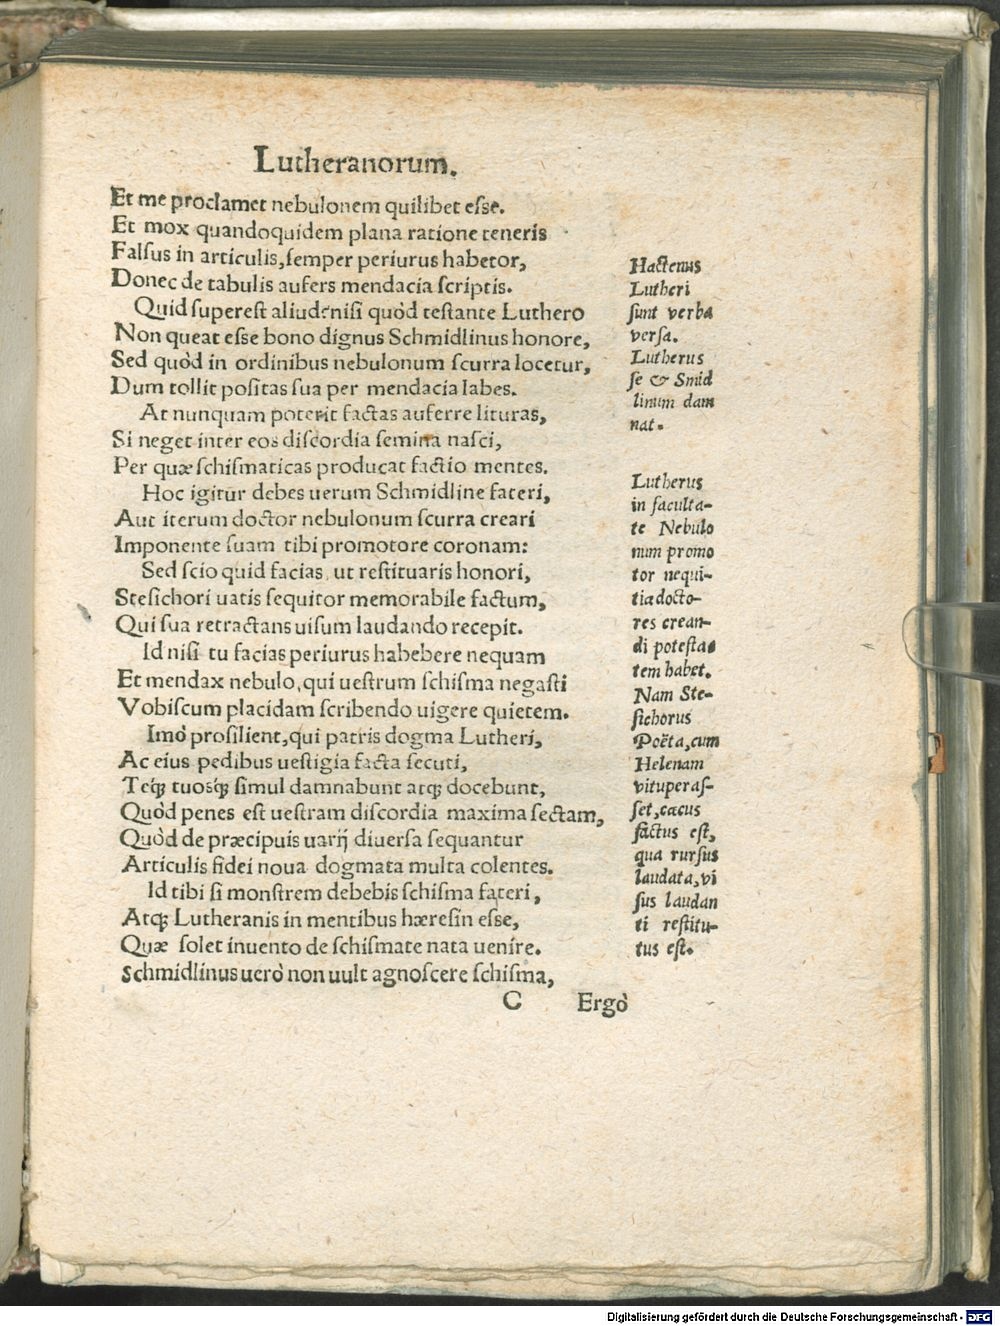 Lutheranorum.
Et me proclamet nebulonem quilibet eſse.
Et mox quandoquidem plana ratione teneris
Falſus in articulis, ſemper periurus habetor,
Donec de tabulis aufers mendacia ſcriptis.
Quid ſupereſt aliud niſi quòd teſtante Luthero
Non queat eſse bono dignus Schmidlinus honore,
Sed quòd in ordinibus nebulonum ſcurra locetur,
Dum tollit poſitas ſua per mendacia labes.
At nunquam poterit factas auferre lituras,
Si neget inter eos diſcordia ſemina naſci,
Per quæ ſchiſmaticas producat factio mentes.
Hoc igitur debes uerum Schmidline fateri,
Aut iterum doctor nebulonum ſcurra creari
Imponente ſuam tibi promotore coronam:
Sed ſcio quid facias, ut reſtituaris honori,
Steſichori uatis ſequitor memorabile factum,
Qui ſua retractans uiſum laudando recepit.
Id niſi tu facias periurus habebere nequam
Et mendax nebulo, qui ueſtrum ſchiſma negaſti
Vobiſcum placidam ſcribendo uigere quietem.
Imò proſilient, qui patris dogma Lutheri,
Ac eius pedibus ueſtigia facta ſecuti,
Teq́; tuosq́; ſimul damnabunt atq; docebunt,
Quòd penes eſt ueſtram diſcordia maxima ſectam,
Quòd de præcipuis uarij diuerſa ſequantur
Articulis fidei noua dogmata multa colentes.
Id tibi ſi monſtrem debebis ſchiſma fateri,
Atq; Lutheranis in mentibus hæreſin eſse,
Quæ ſolet inuento de ſchiſmate nata uenire.
Schmidlinus uerò non uult agnoſcere ſchiſma,
C Ergò
Hactenus
Lutheri
ſunt verba
verſa.
Lutherus
ſe & Smid
linum dam
nat.
Lutherus
in faculta-
te Nebulo
num promo
tor nequi-
tia docto-
res crean-
di poteſta
tem habet.
Nam Ste-
ſichorus
Poëta, cum
Helenam
vituperaſ-
ſet, cæcus
factus eſt,
qua rurſus
laudata, vi
ſus laudan
ti reſtitu-
tus eſt.
Digitalisierung gefördert durch die Deutsche Forschungsgemeinschaft - DFG